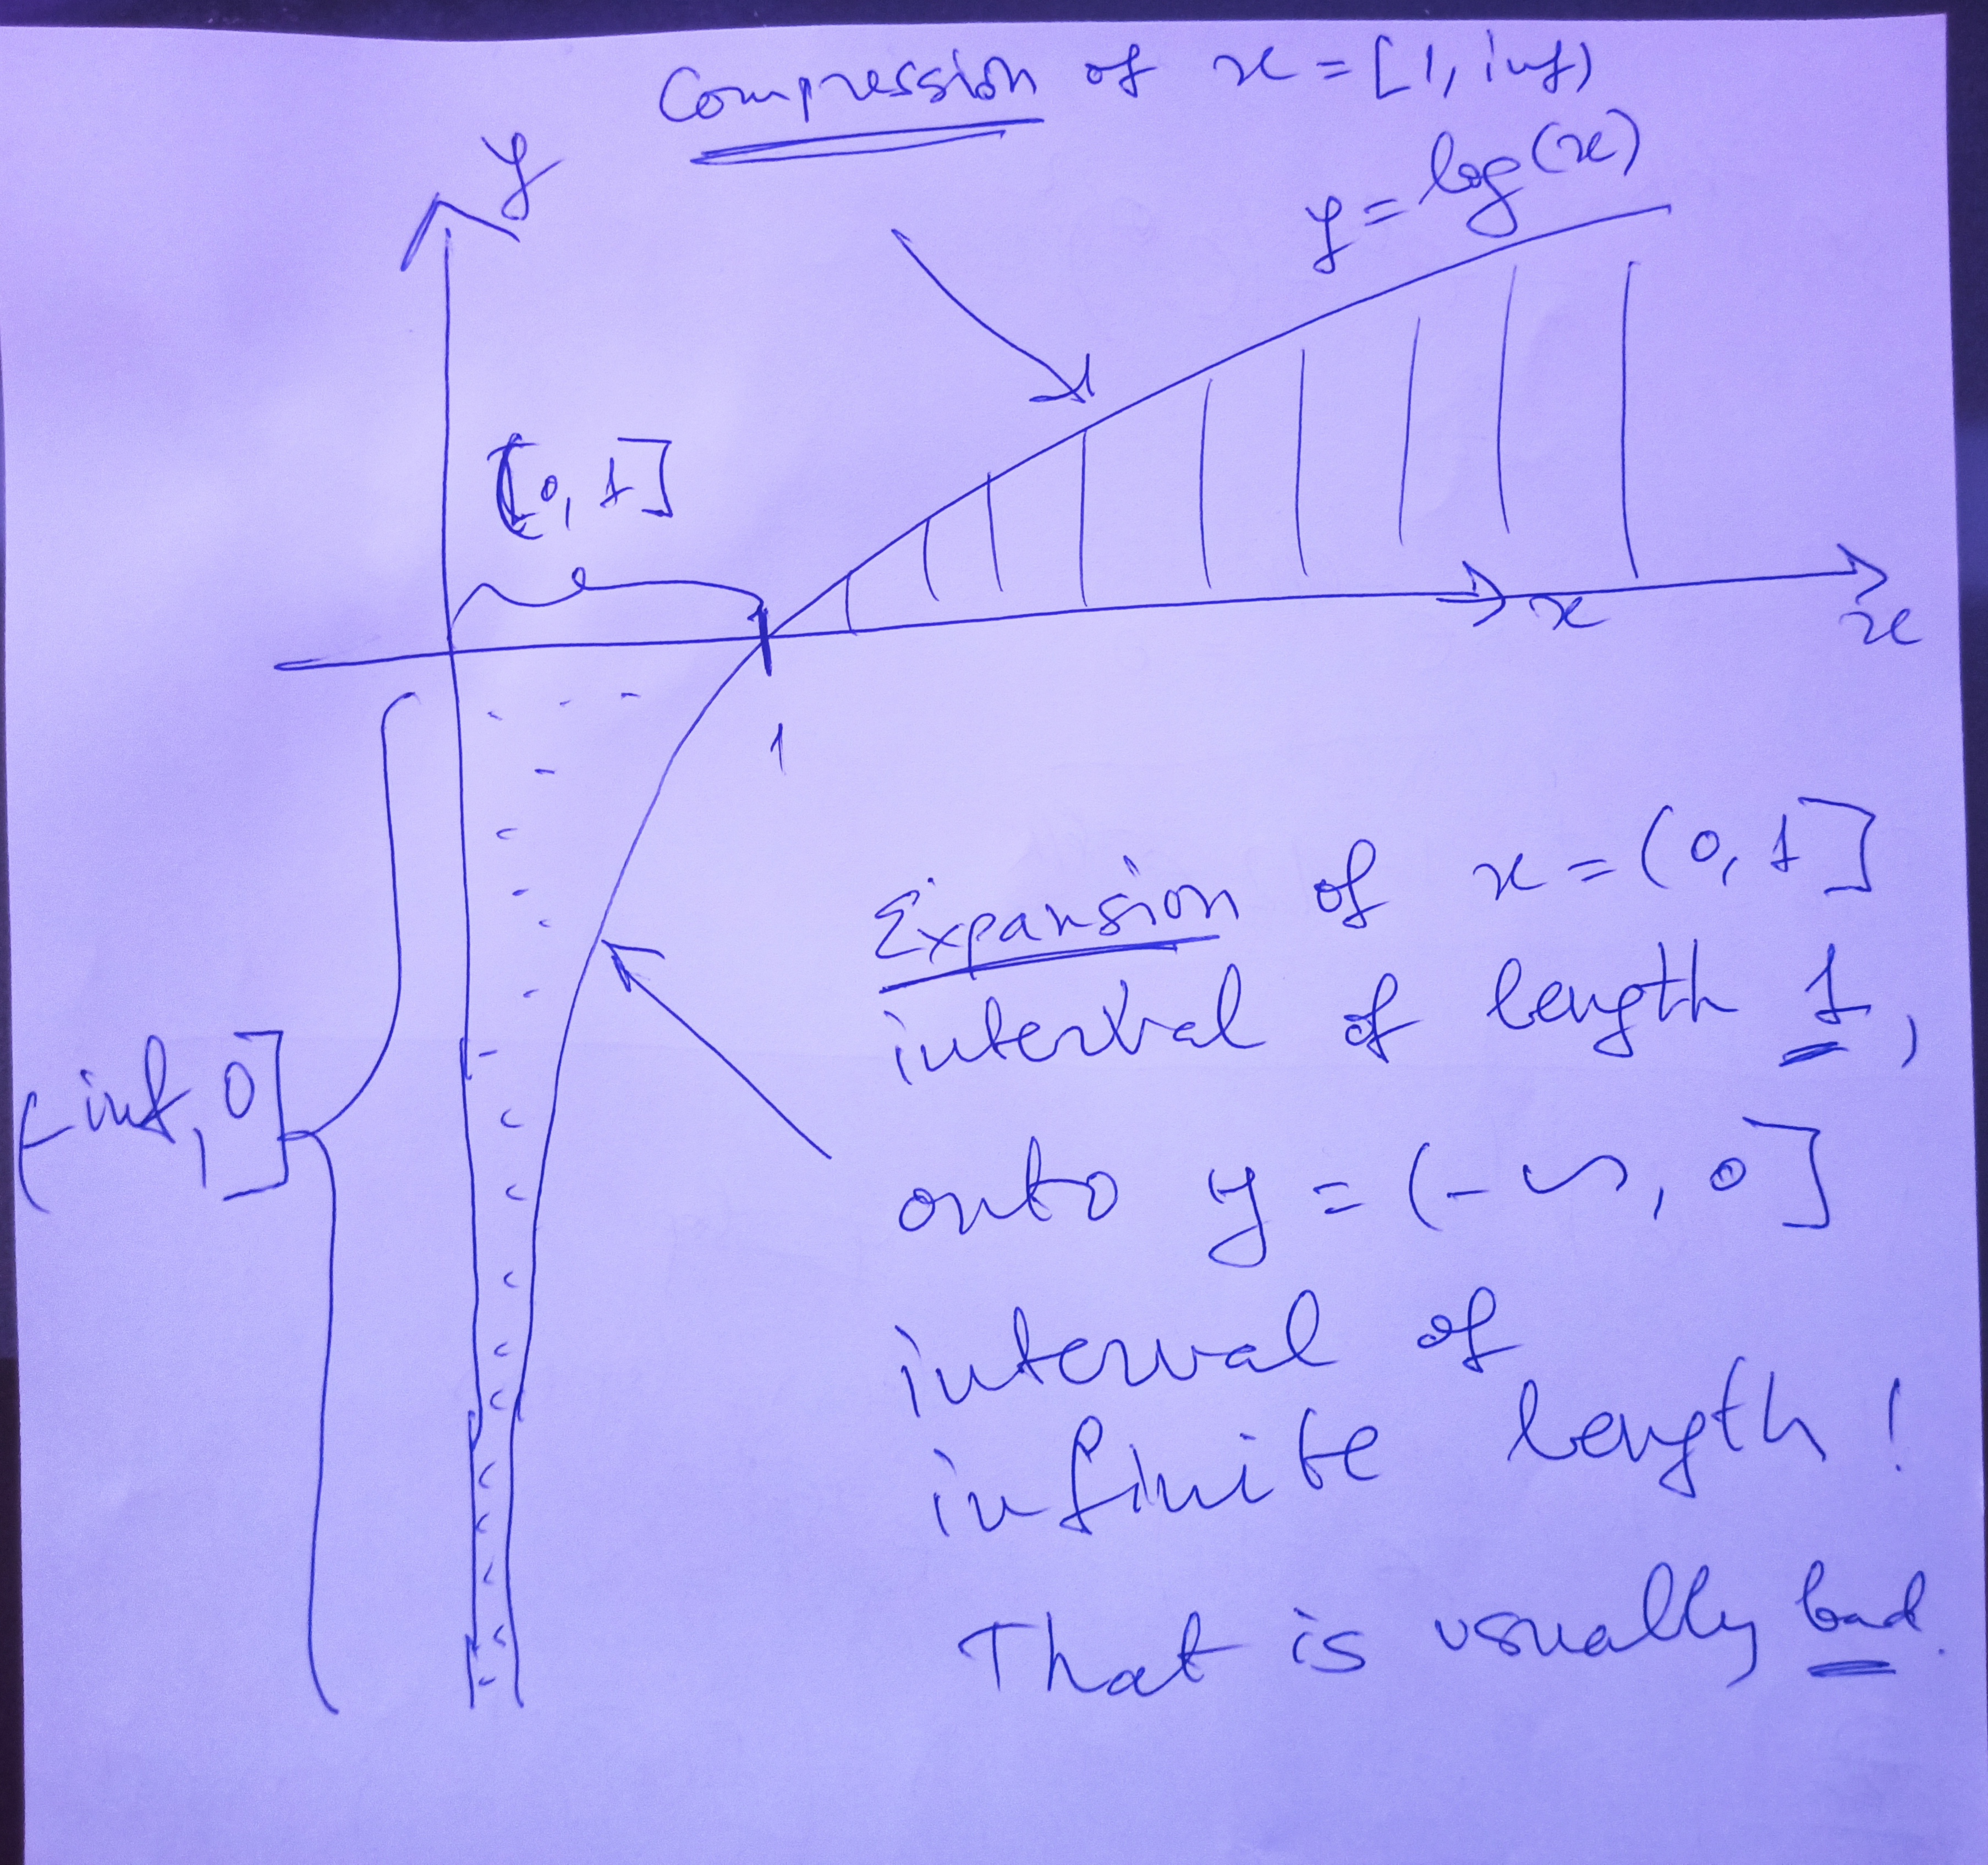 Compression of x = [1, inf)
y
y = log(x)
(0, 1]
x
x
1
(-inf, 0]
Expansion of x = (0, 1]
interval of length 1,
onto y = (-∞, 0]
interval of
infinite length!
That is usually bad.